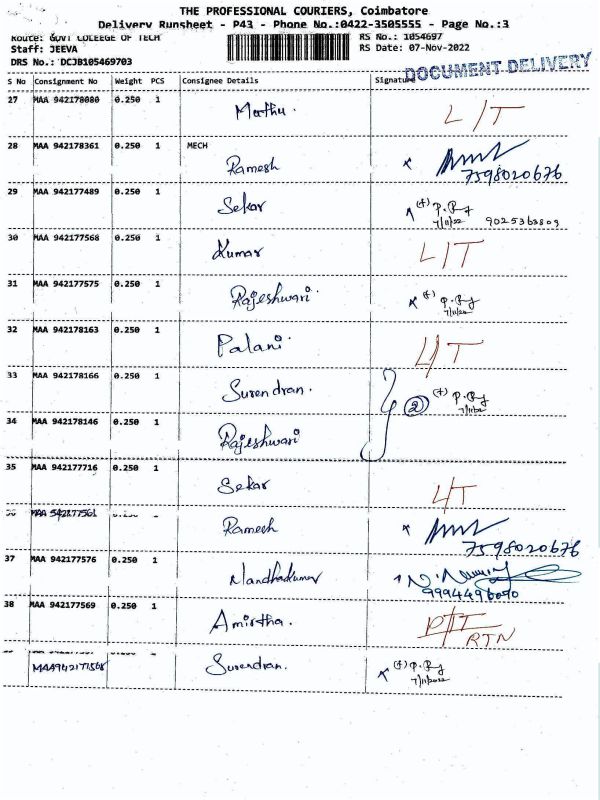 THE PROFESSIONAL COURIERS, Coimbatore
Delivery Runsheet - P43 - Phone No.:0422-3505555 - Page No.:3
Route: GOVT COLEEGE OF TECH RS No.: 1054697
Staff: JEEVA RS Date: 07-Nov-2022
DRS No.: DCJB105469703
DOCUMENT DELIVERY
S No Consignment No Weight PCS Consignee Details Signature
27 MAA 942178080 0.250 1 Muthu. L/T
28 MAA 942178361 0.250 1 MECH
Ramesh
7598020676
29 MAA 942177489 0.250 1 Sekar
7/11/22 9025363803
30 MAA 942177568 0.250 1 Kumar L/T
31 MAA 942177575 0.250 1 Rajeshwari.
7/11/22
32 MAA 942178163 0.250 1 Palani L/T
33 MAA 942178166 0.250 1 Surendran.
2
34 MAA 942178146 0.250 1 Rajeshwari
35 MAA 942177716 0.250 1 Sekar L/T
Ramesh
7598020676
37 MAA 942177576 0.250 1 Nandhakumar
38 MAA 942177569 0.250 1 Amirtha.
RTN
Surendran.
7/11/2022